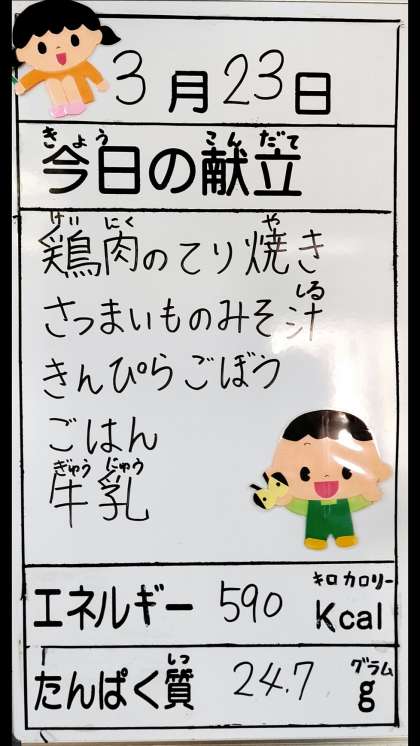 3月23日
きょう こんだて
今日の献立
けい にく や
鶏肉のてり焼き
しる
さつまいものみそ汁
きんぴらごぼう
ごはん
ぎゅう にゅう
牛乳
キロカロリー
エネルギー 590 Kcal
しつ グラム
たんぱく質 24.7 g